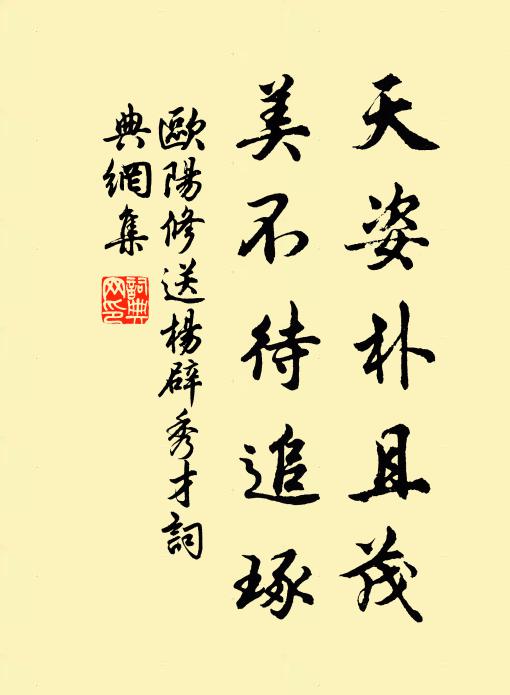 天姿朴且茂
美不待追琢
歐陽修送楊辟秀才詞
典網集
詞典
网印